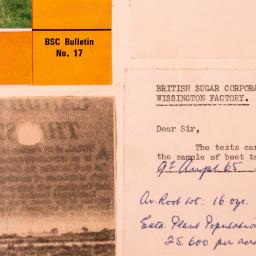 BSC Bulletin
No. 17
BRITISH SUGAR CORPORA
WISSINGTON FACTORY.
Dear Sir,
The tests car
the sample of beet ta
9th August 65
Av. Root Wt. 16 ozs.
Esta. Plant Population
25.600 per acre